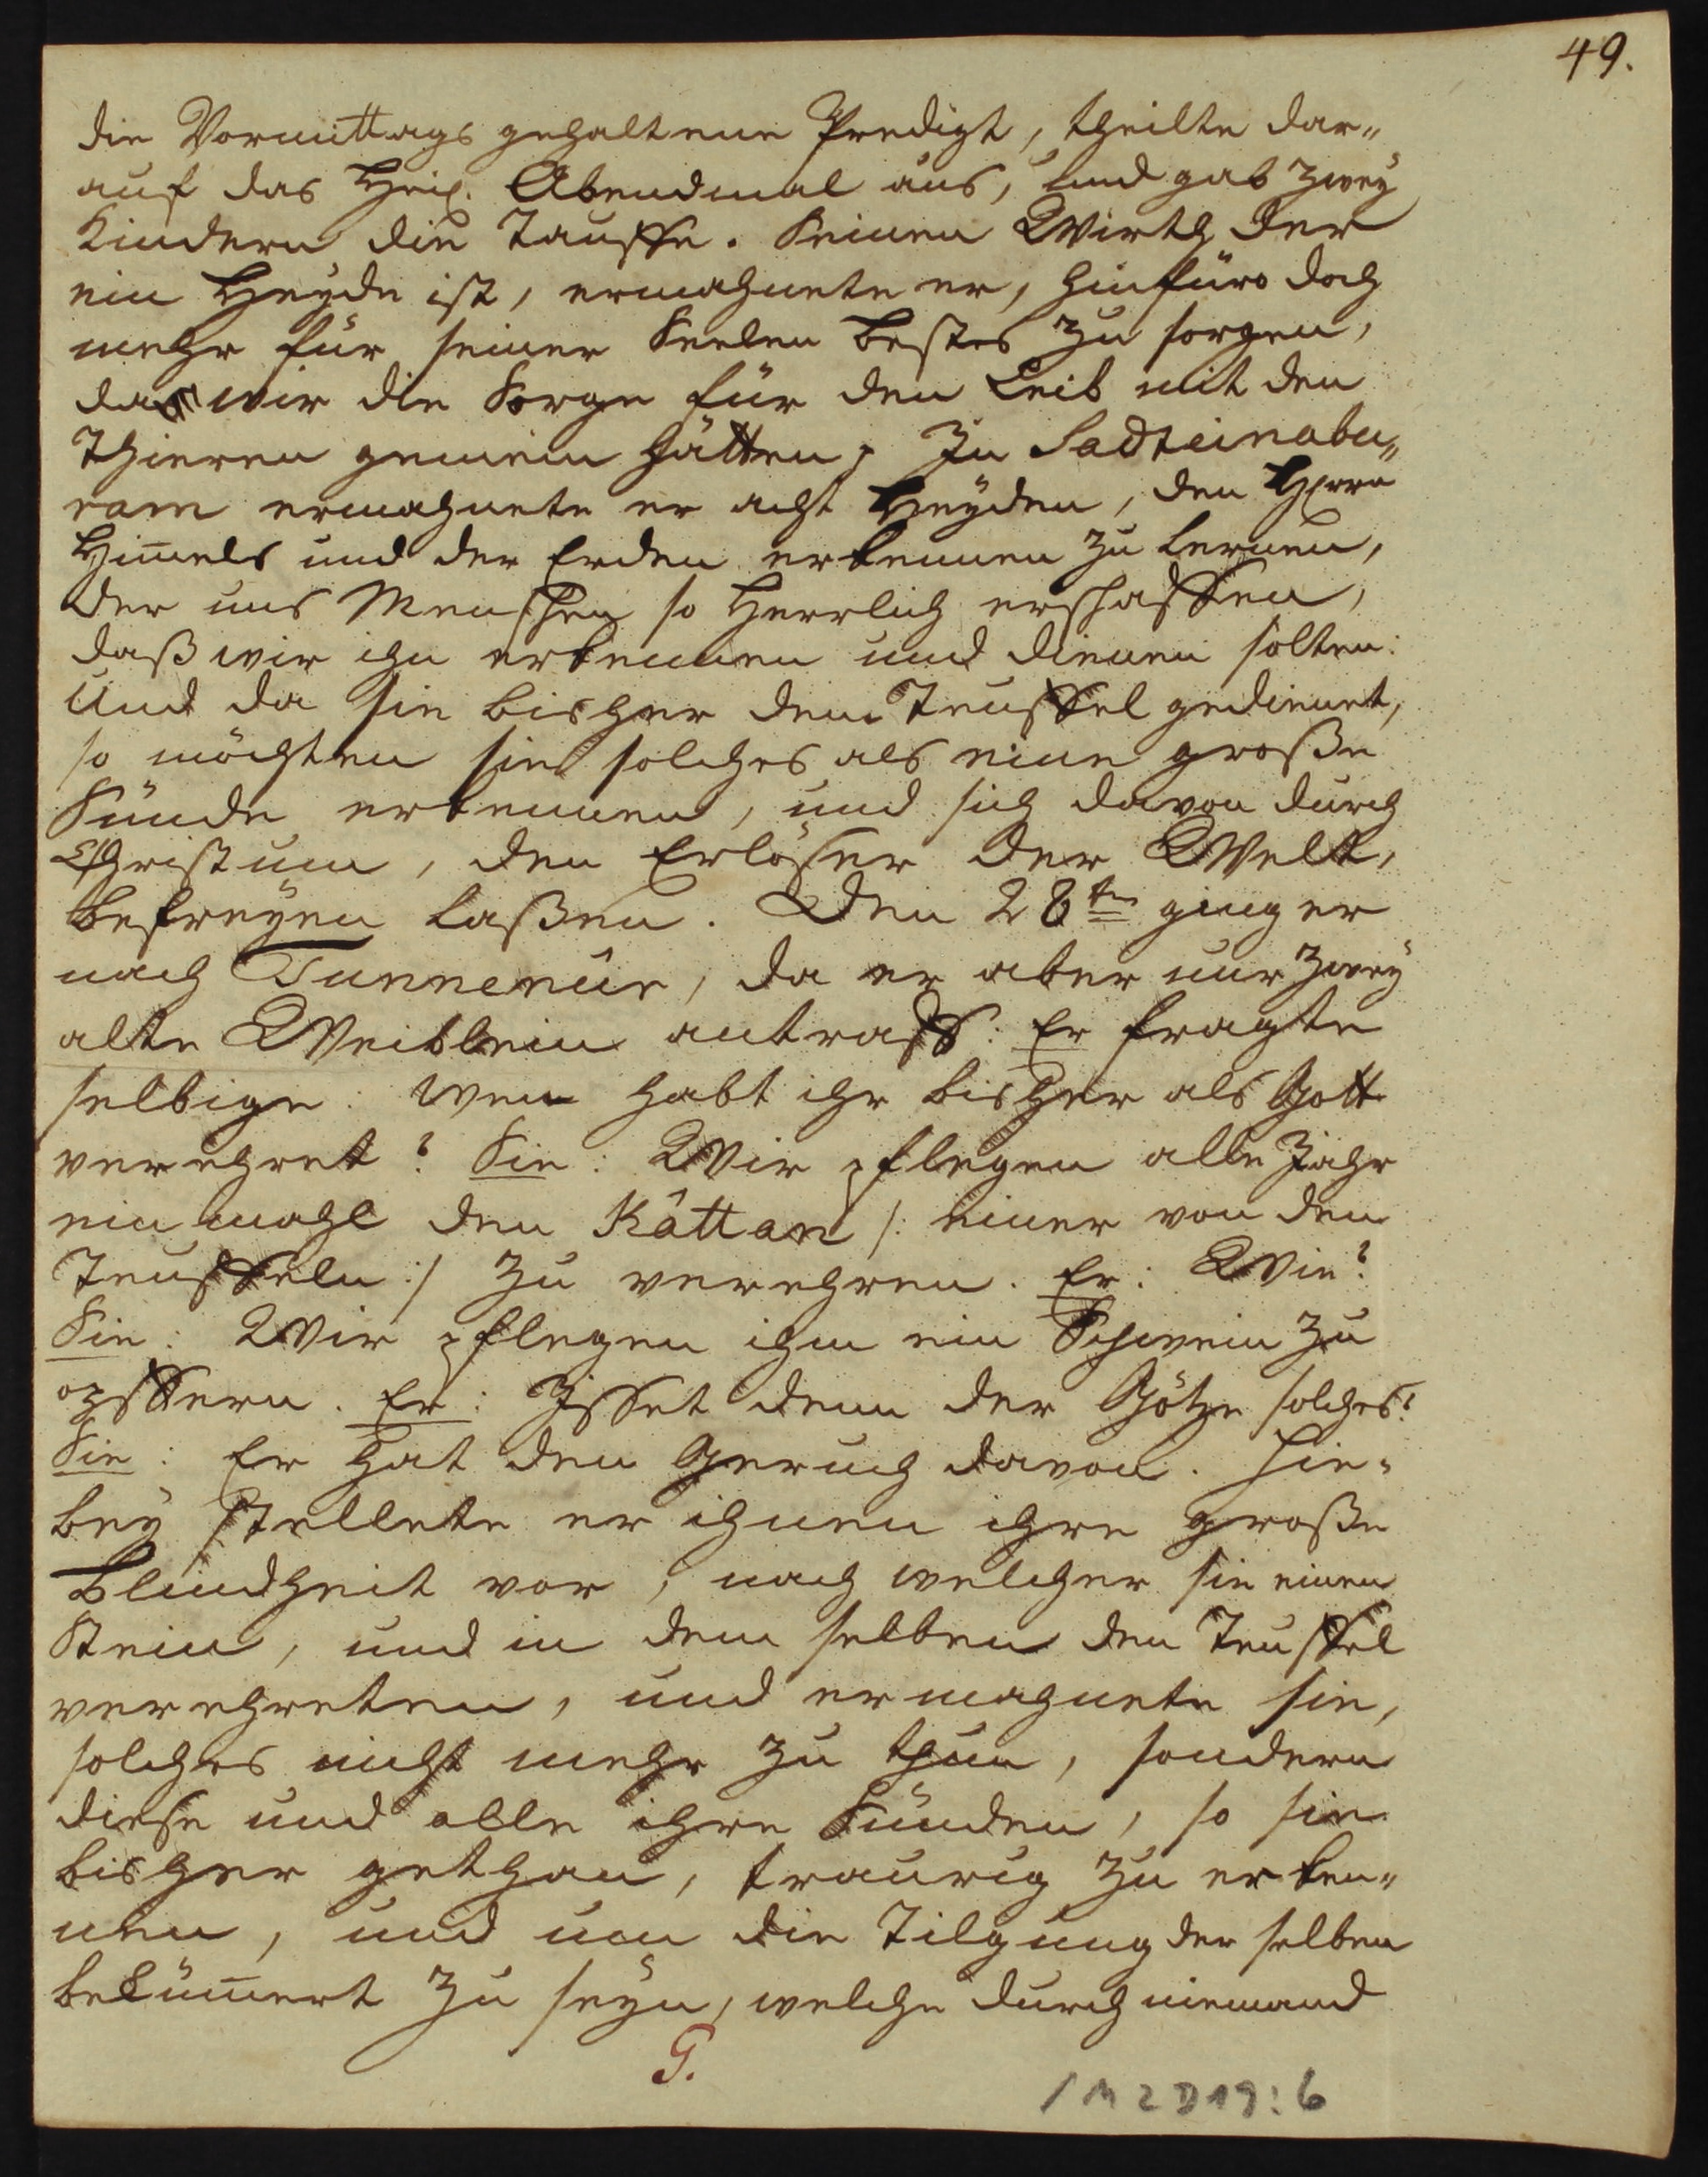 49.
die Vormittags gehaltene Predigt, theilte dar„
auf das Heil. Abendmal aus, und gab zwey
Kindern die Tauffe. Seinen Wirth der
ein Heyde ist, ermahnete er, hinführo doch
mehr für seiner Seelen Bestes zu sorgen,
da wir die Sorge für den Leib mit den
Thieren gemein hätten; In Sadteinabu„
ram ermahnete er acht Heyden, den Herrn
Him̄els und der Erden erkennen zu lernen,
der uns Menschen so herrlich erschaffen,
daß wir ihn erkennen und dienen solten:
Und da sie bisher dem Teuffel gedienet,
so möchten sie solches als eine große
Sünde erkennen, und sich davon durch
Christum, den Erlöser der Welt,
befreyen laßen. Den 28ten ging er
nach Tunnerúr, da er aber nur zwey
alte Weiblein antraff: Er fragte
selbige: Wen habt ihr bisher als Gott
verehret? Sie: Wir pflegen alle Jahr
ein mahl den Kâttan /: einer von den
Teuffeln :/ zu verehren. Er: Wie?
Sie: Wir pflegen ihm ein Schwein zu
opffern. Er: Isset denn der Götze solches?
Sie: Er hat den Geruch davon. Hie-
bey stellete er ihnen ihre große
Blindheit vor, nach welcher sie einen
Stein, und in dem selben den Teuffel
verehreten, und ermahnete sie,
solches nicht mehr zu thun, sondern
diese und alle ihre Sünden, so sie
bisher gethan, traurig zu erken„
nen, und um die Tilgung der selben
beküm̄ert zu seyn, welche durch niemand
G.
1 M 2 D 19 : 6